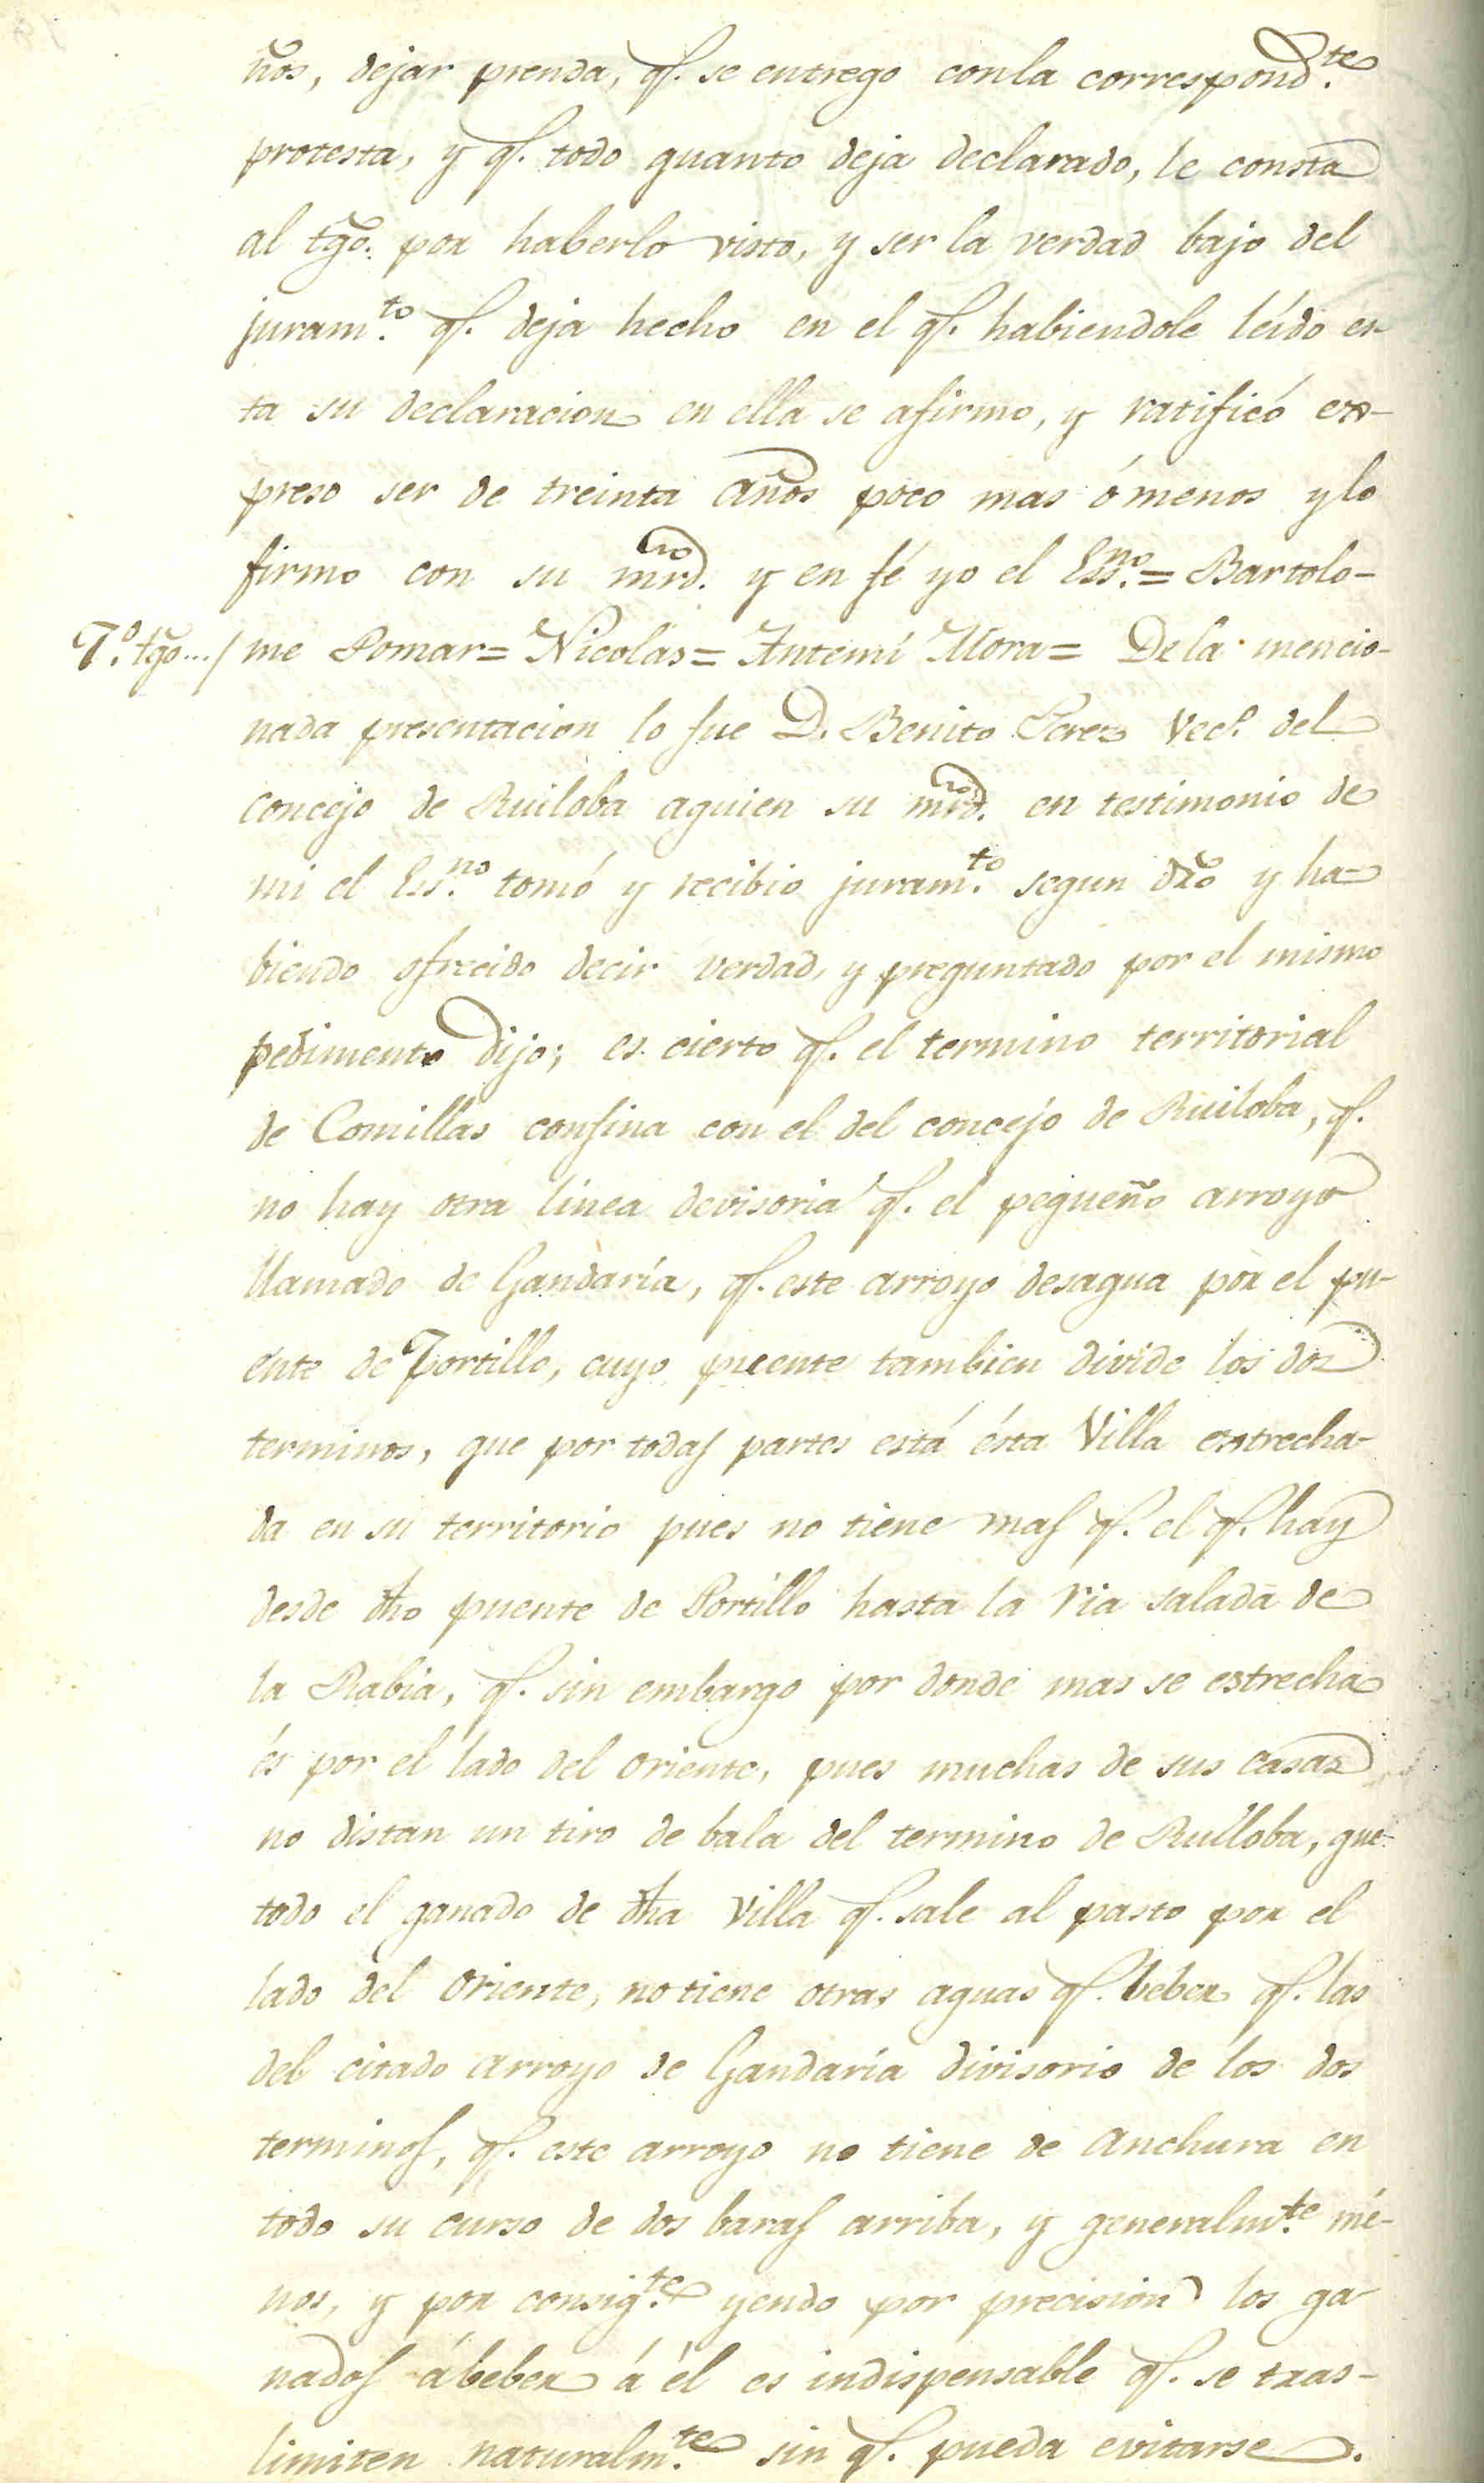 ños, dejar prenda, q.e se entrego conla correspond.te
protesta, y q.e todo quanto deja declarado, le consta
al tgo. por haberlo visto, y ser la verdad bajo del
juram.to q.e deja hecho en el q.e habiendole leido es-
ta su declaracion en ella se afirmo, y ratificó ex-
preso ser de treinta años poco mas ó menos y lo
firmo con su mrd. y en fé yo el Ess.no = Bartolo-
7.º tgo... / me Pomar = Nicolas = Antemi Mora = De la mencio-
nada presentacion lo fue D. Benito Perez Vec.º del
concejo de Ruiloba aquien su mrd. en testimonio de
mi el Ess.no tomó y recibio juram.to segun dro y ha-
biendo ofrecido decir verdad, y preguntado por el mismo
pedimento dijo; es cierto q.e el termino territorial
de Comillas confina con el del concejo de Ruiloba, q.e
no hay otra linea devisoria q.e el pequeño arroyo
llamado de Gandaría, q.e este arroyo desagua por el pu-
ente de Portillo, cuyo puente tambien divide los dos
terminos, que por todas partes está ésta Villa estrecha-
da en su territorio pues no tiene mas q.e el q.e hay
desde dho puente de Portillo hasta la ria salada de
la Rabia, q.e sin embargo por donde mas se estrecha
és por el lado del oriente, pues muchas de sus casas
no distan un tiro de bala del termino de Ruiloba, que
todo el ganado de dha Villa q.e sale al pasto por el
lado del oriente, no tiene otras aguas q.e beber q.e las
del citado arroyo de Gandaría divisorio de los dos
terminos, q.e este arroyo no tiene de anchura en
todo su curso de dos baras arriba, y generalm.te mé-
nos, y por consig.te yendo por precision los ga-
nados á beber á él es indispensable q.e se tras-
limiten naturalm.te sin q.e pueda evitarse.